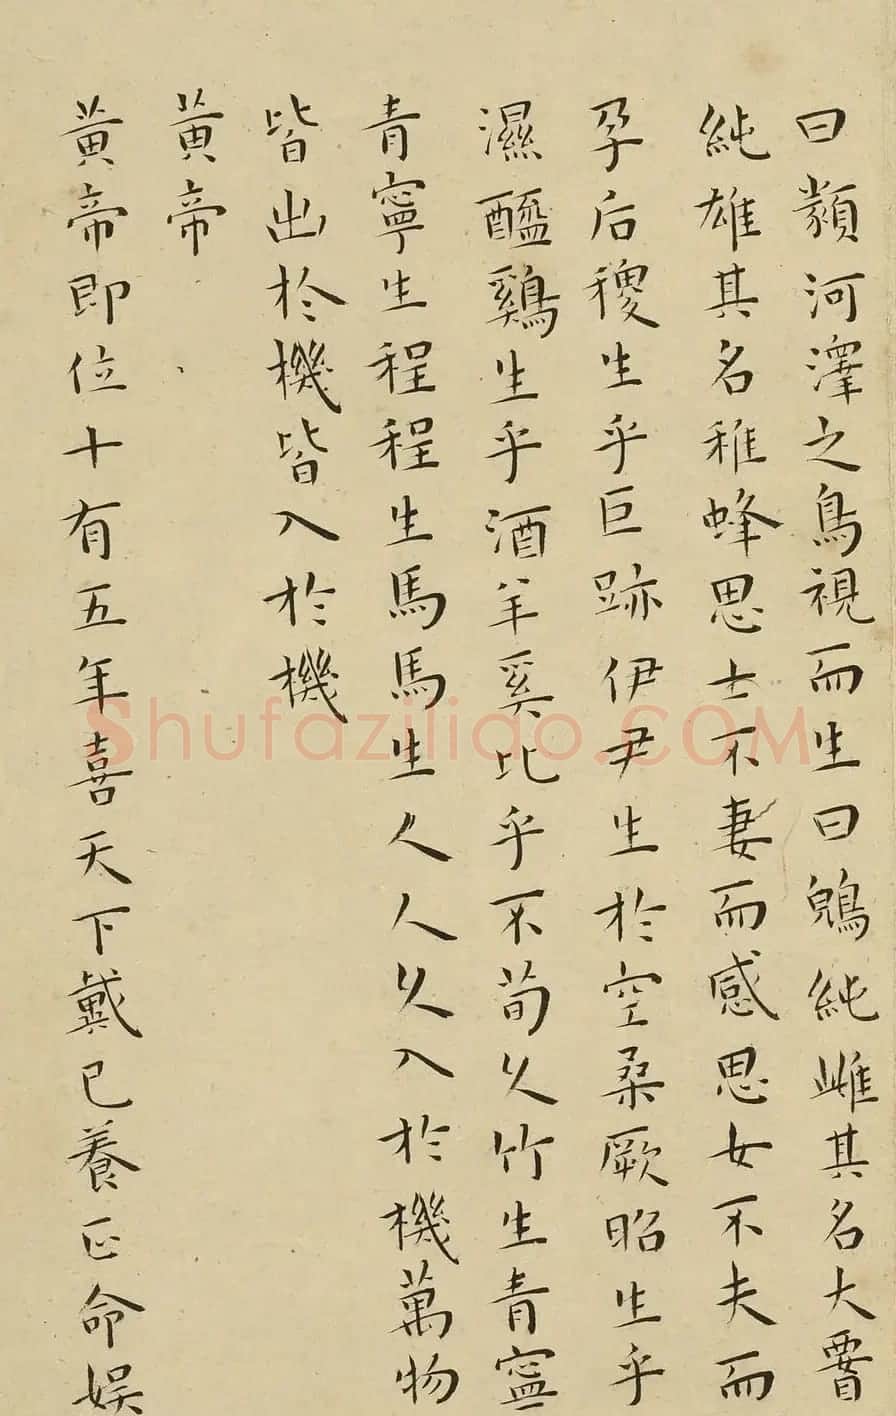 曰類河澤之鳥視而生曰鶂純雌其名大䁂
純雄其名稚蜂思士不妻而感思女不夫而
孕后稷生乎巨跡伊尹生於空桑厥昭生乎
濕醯鷄生乎酒羊奚比乎不荀久竹生青寧
青寧生程程生馬馬生人人久入於機萬物
皆出於機皆入於機
黃帝
黃帝即位十有五年喜天下戴已養正命娱
Shufaziliao.COM